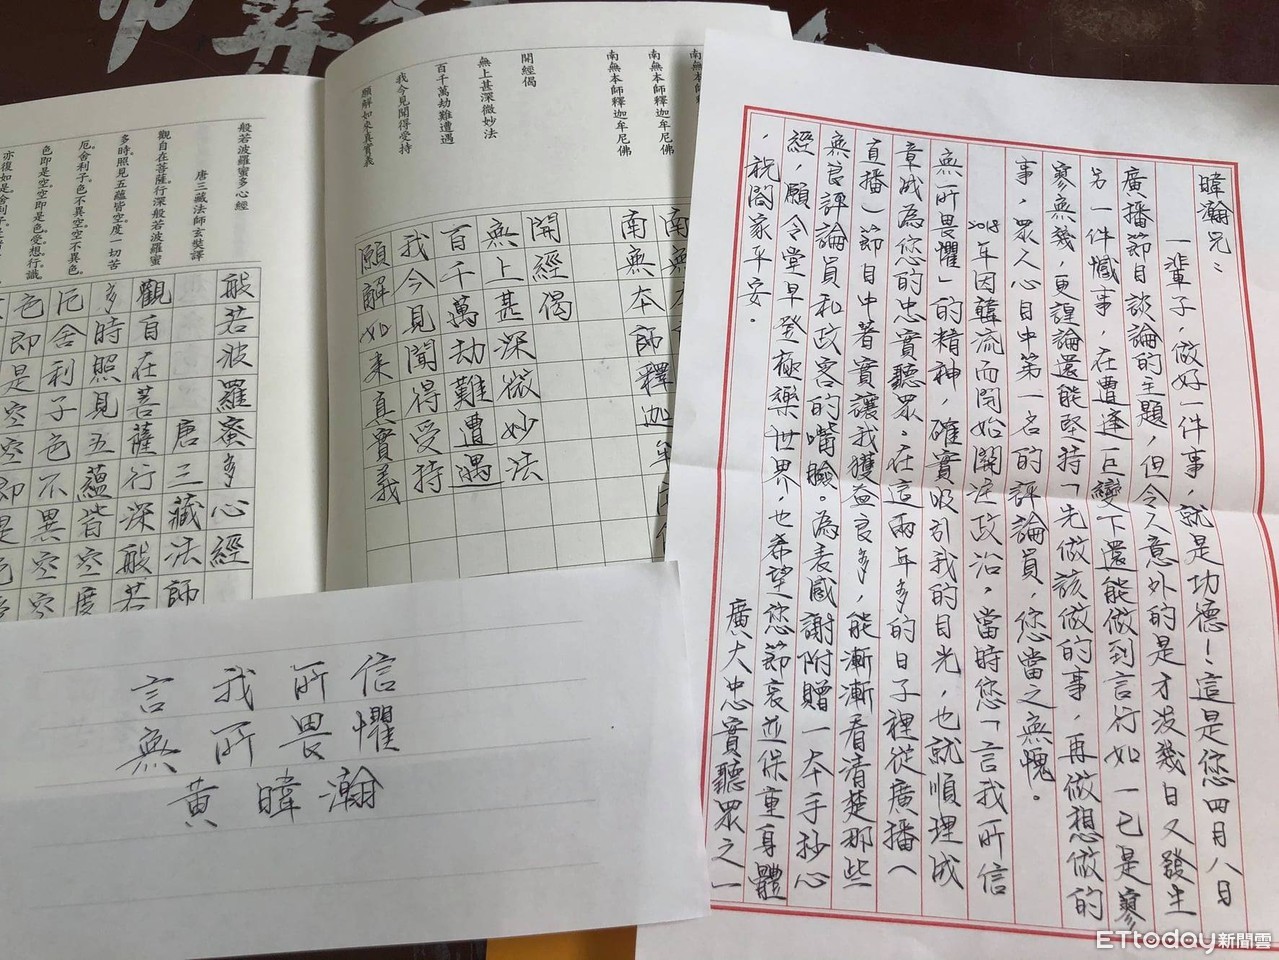 暐瀚兄：
一輩子，做好一件事，就是功德！這是您四月八日
廣播節目談論的主題，但令人意外的是才沒幾日又發生
另一件憾事，在遭逢巨變下還能做到言行如一已是寥
寥無幾，更遑論還能堅持「先做該做的事，再做想做的
事，眾人心目中第一名的評論員，您當之無愧。
2018年因韓流而開始關注政治。當時您「言我所信
無所畏懼」的精神，確實吸引我的目光，也就順理成
章成為您的忠實聽眾。在這兩年多的日子裡從廣播（
直播）節目中著實讓我獲益良多，能漸漸看清楚那些
無良評論員和政客的嘴臉。為表感謝附贈一本手抄心
經，願令堂早登極樂世界，也希望您節哀並保重身體
，祝闔家平安。
廣大忠實聽眾之一
南無本師釋迦牟尼佛
南無本師釋迦牟尼佛
開經偈
無上甚深微妙法
百千萬劫難遭遇
我今見聞得受持
願解如來真實義
南無
南無本師釋迦牟
開經偈
無上甚深微妙法
百千萬劫難遭遇
我今見聞得受持
願解如來真實義
般若波羅蜜多心經
唐三藏法師玄奘譯
觀自在菩薩行深般若波羅蜜
多時照見五蘊皆空。度一切苦
厄舍利子。色不異空空不異色。
色即是空空即是色受。想行識
亦復如是。舍利子。
般若波羅蜜多心經
唐三藏法師
觀自在菩薩行深般若
多時照見五蘊皆空度
厄舍利子色不異空空
色即是空空即是色
言我所信
無所畏懼
黃暐瀚
ETtoday新聞雲